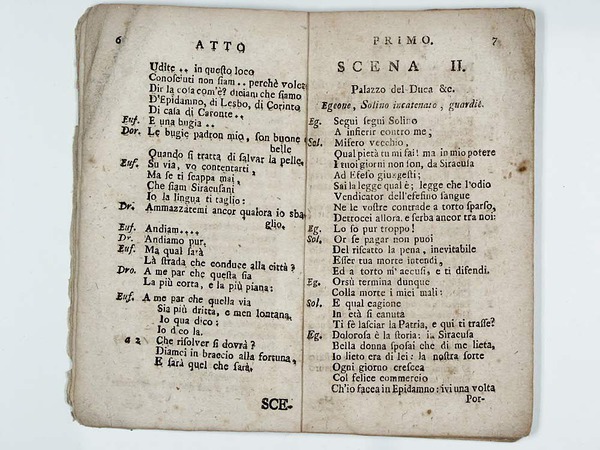 6
ATTO
Udite .. in questo loco
Conosciuti non siam .. perchè volea
Dir la cosa com'è? diciam che siamo
D'Epidamno, di Lesbo, di Corinto
Di casa di Caronte..
Euf. E una bugia ..
Dor. Le bugie padron mio, son buone e
belle
Quando si tratta di salvar la pelle.
Euf. Su via, vo contentarti,
Ma se ti scappa mai,
Che siam Siracusani
Io la lingua ti taglio:
Dr. Ammazzatemi ancor qualora io sba-
glio.
Euf. Andiam....
Dr. Andiamo pur.
Euf. Ma qual sarà
La strada che conduce alla città?
Dro. A me par che questa sia
La più corta, e la più piana:
Euf. A me par che quella via
Sia più dritta, e men lontana.
Io qua dico:
Io dico la.
a 2 Che risolver si dovrà?
Diamci in braccio alla fortuna,
E sarà quel che sarà.
SCE-
PRIMO.
7
SCENA II.
Palazzo del Duca &c.
Egeone, Solino incatenato, guardie.
Eg. Segui segui Solino
A infierir contro me,
Sol. Misero vecchio,
Qual pietà tu mi fai! ma in mio potere
I tuoi giorni non son, da Siracusa
Ad Efeso giugesti;
Sai la legge qual è; legge che l'odio
Vendicator dell'efesino sangue
Ne le vostre contrade a torto sparso,
Detrocci allora, e serba ancor tra noi:
Eg. Lo so pur troppo!
Sol. Or se pagar non puoi
Del riscatto la pena, inevitabile
Esser tua morte intendi,
Ed a torto m'accusi, e ti difendi.
Eg. Orsù termina dunque
Colla morte i miei mali:
Sol. E qual cagione
In età sì canuta
Ti fè lasciar la Patria, e qui ti trasse?
Eg. Dolorosa è la storia: in Siracusa
Bella donna sposai che di me lieta,
Io lieto era di lei: la nostra sorte
Ogni giorno crescea
Col felice commercio
Ch'io facea in Epidamno: ivi una volta
Por-